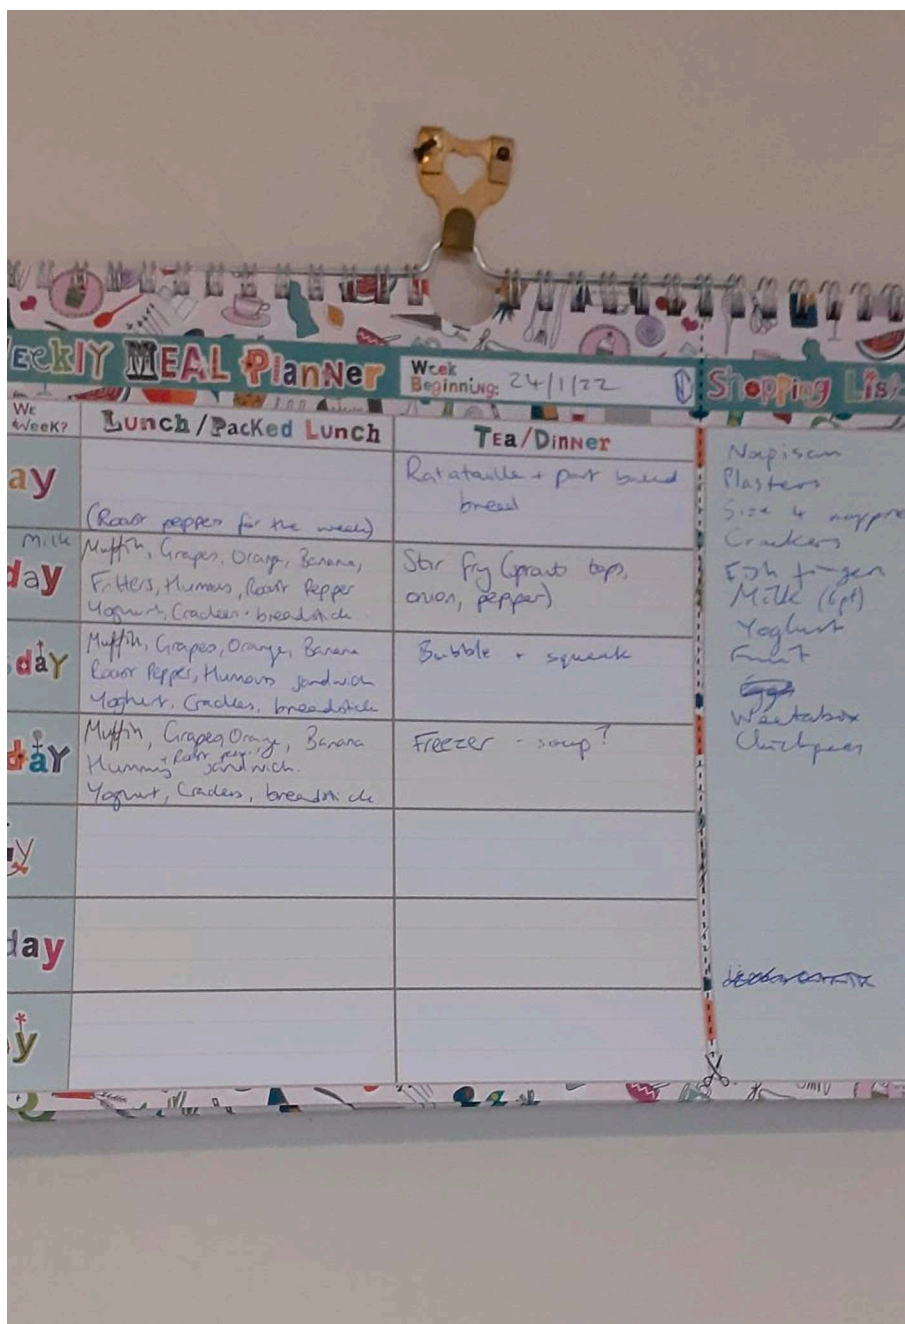 eekly Meal Planner
Week
Beginning: 24/1/22
Shopping Lis
We
Week?
Lunch/Packed Lunch
Tea/Dinner
ay
(Roast pepper for the week)
Ratatouille + part baked
bread
Milk
day
Muffin, Grapes, Orange, Banana,
Fritters, Humous, Roast Pepper
Yoghurt, Crackers breadstick
Stir fry (sprout tops,
onion, pepper)
day
Muffin, Grapes, Orange, Banana
Roast Pepper, Humous sandwich
Yoghurt, Crackers, breadstick
Bubble + squeak
day
Muffin, Grapes, Orange, Banana
Hummus sandwich.
Yoghurt, Crackers, breadstick
Freezer - soup?
y
day
y
Napisan
Plasters
Size 4 nappie
Crackers
Fish fingers
Milk (6pt)
Yoghurt
Fruit
Weetabix
Chickpeas